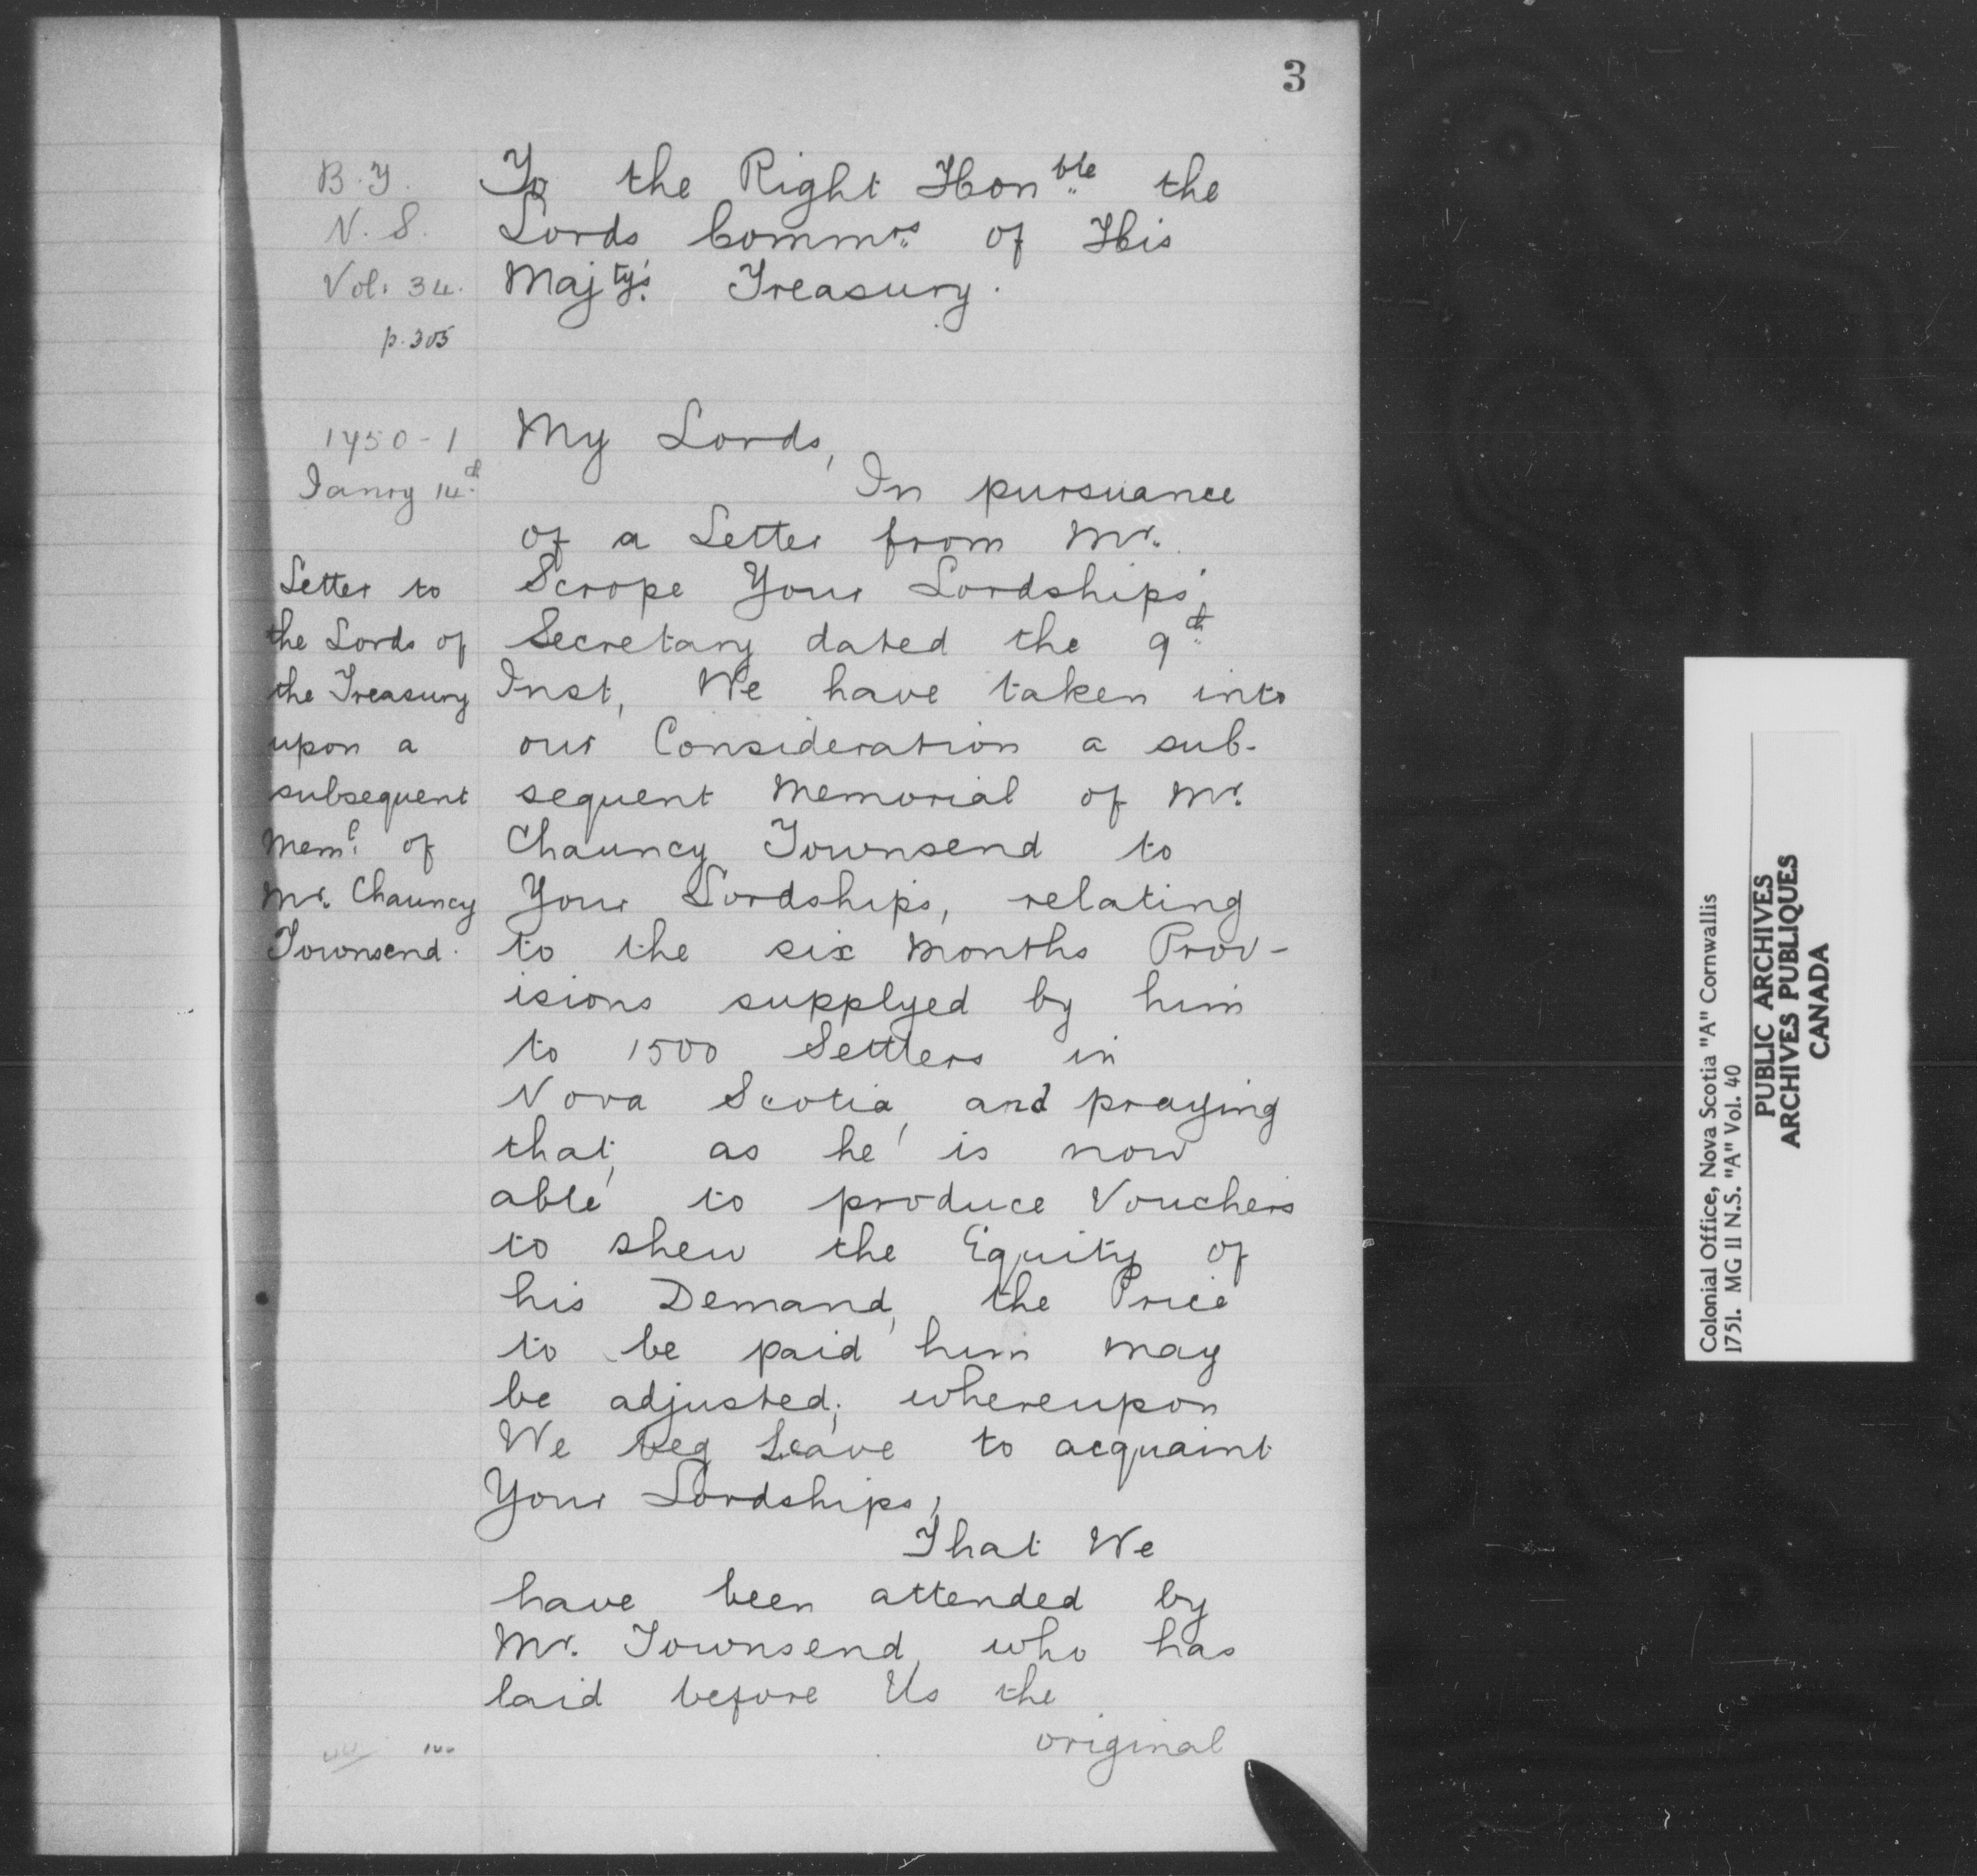 3
B.T.
N.S.
Vol. 34.
p. 305
To the Right Honble the
Lords Commrs of His
Majty's Treasury.
1750-1
Janry 14th
Letter to
the Lords of
the Treasury
upon a
subsequent
Meml. of
Mr. Chauncy
Townsend.
My Lords,
In pursuance
of a Letter from Mr.
Scrope Your Lordships'
Secretary dated the 9th
Inst, We have taken into
our Consideration a sub-
sequent Memorial of Mr.
Chauncy Townsend to
Your Lordships, relating
to the six Months Prov-
isions supplyed by him
to 1500 Settlers in
Nova Scotia, and praying
that, as he is now
able to produce Vouchers
to shew the Equity of
his Demand, the Price
to be paid him may
be adjusted; whereupon
We beg Leave to acquaint
Your Lordships,
That We
have been attended by
Mr. Townsend, who has
laid before Us the
original
Colonial Office, Nova Scotia "A" Cornwallis
1751. MG 11 N.S. "A" Vol. 40
PUBLIC ARCHIVES
ARCHIVES PUBLIQUES
CANADA